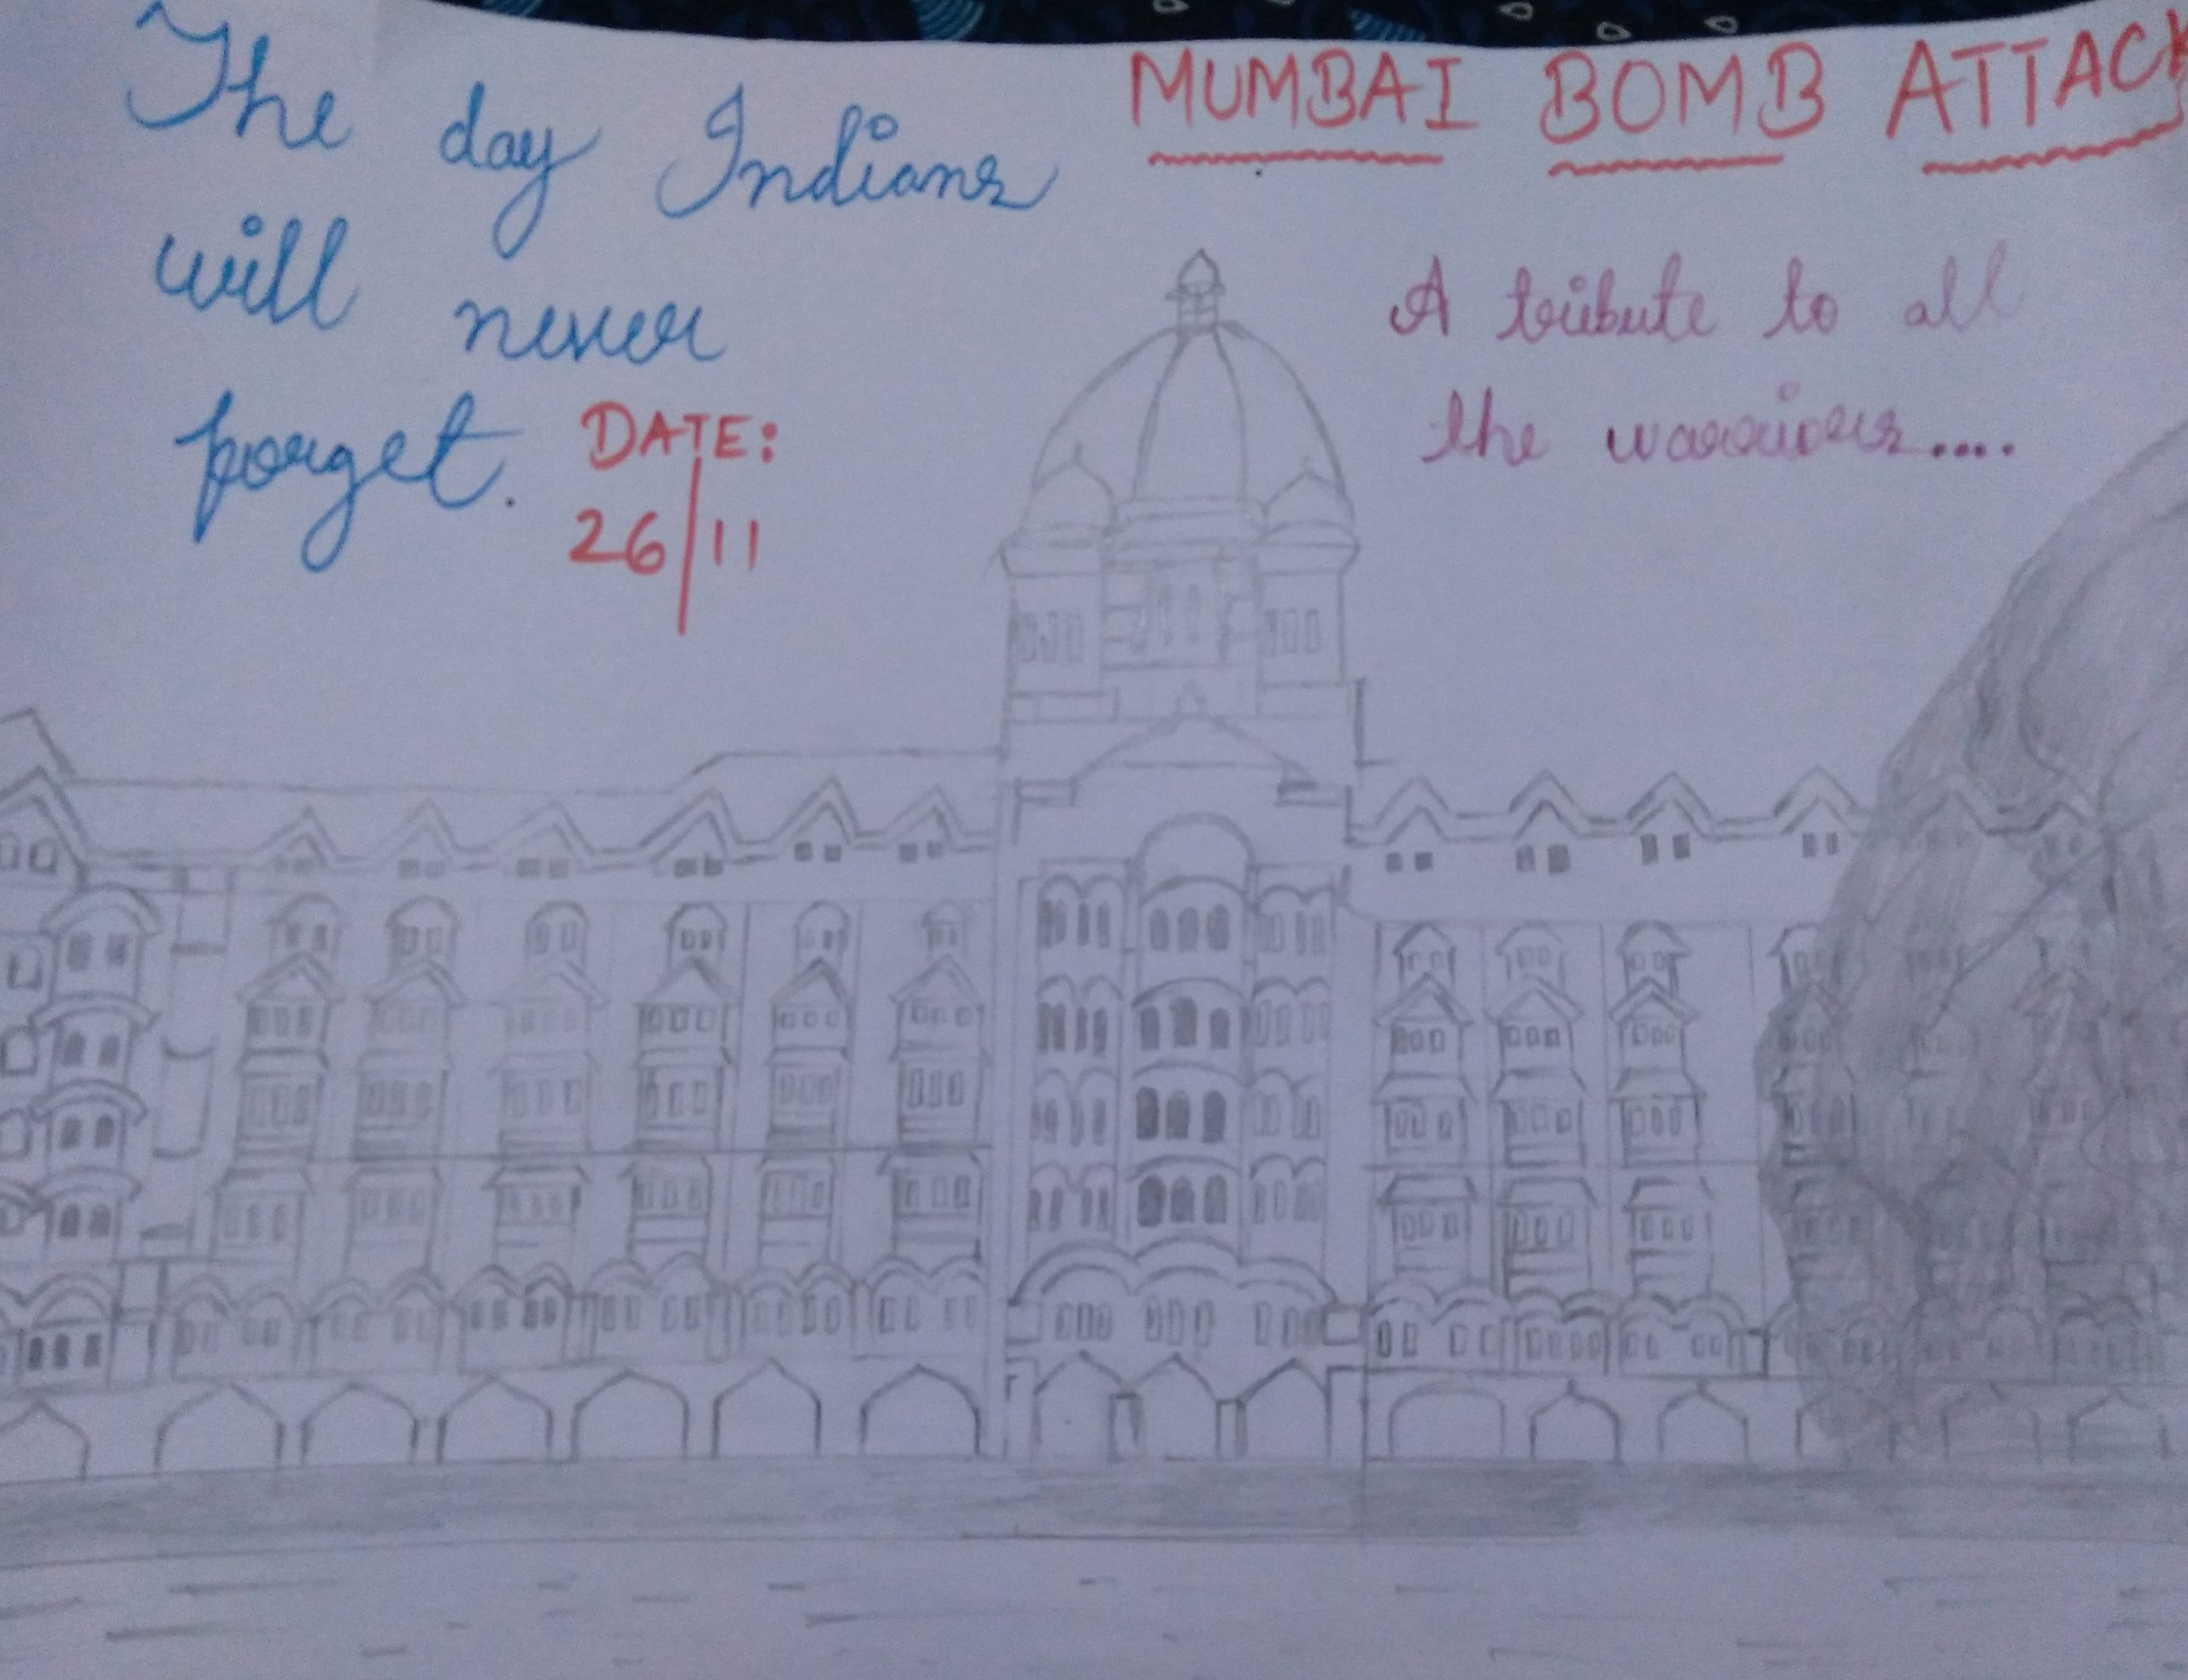 The day Indians
will never
forget.
DATE:
26/11
MUMBAI BOMB ATTACK
A tribute to all
the warriors....